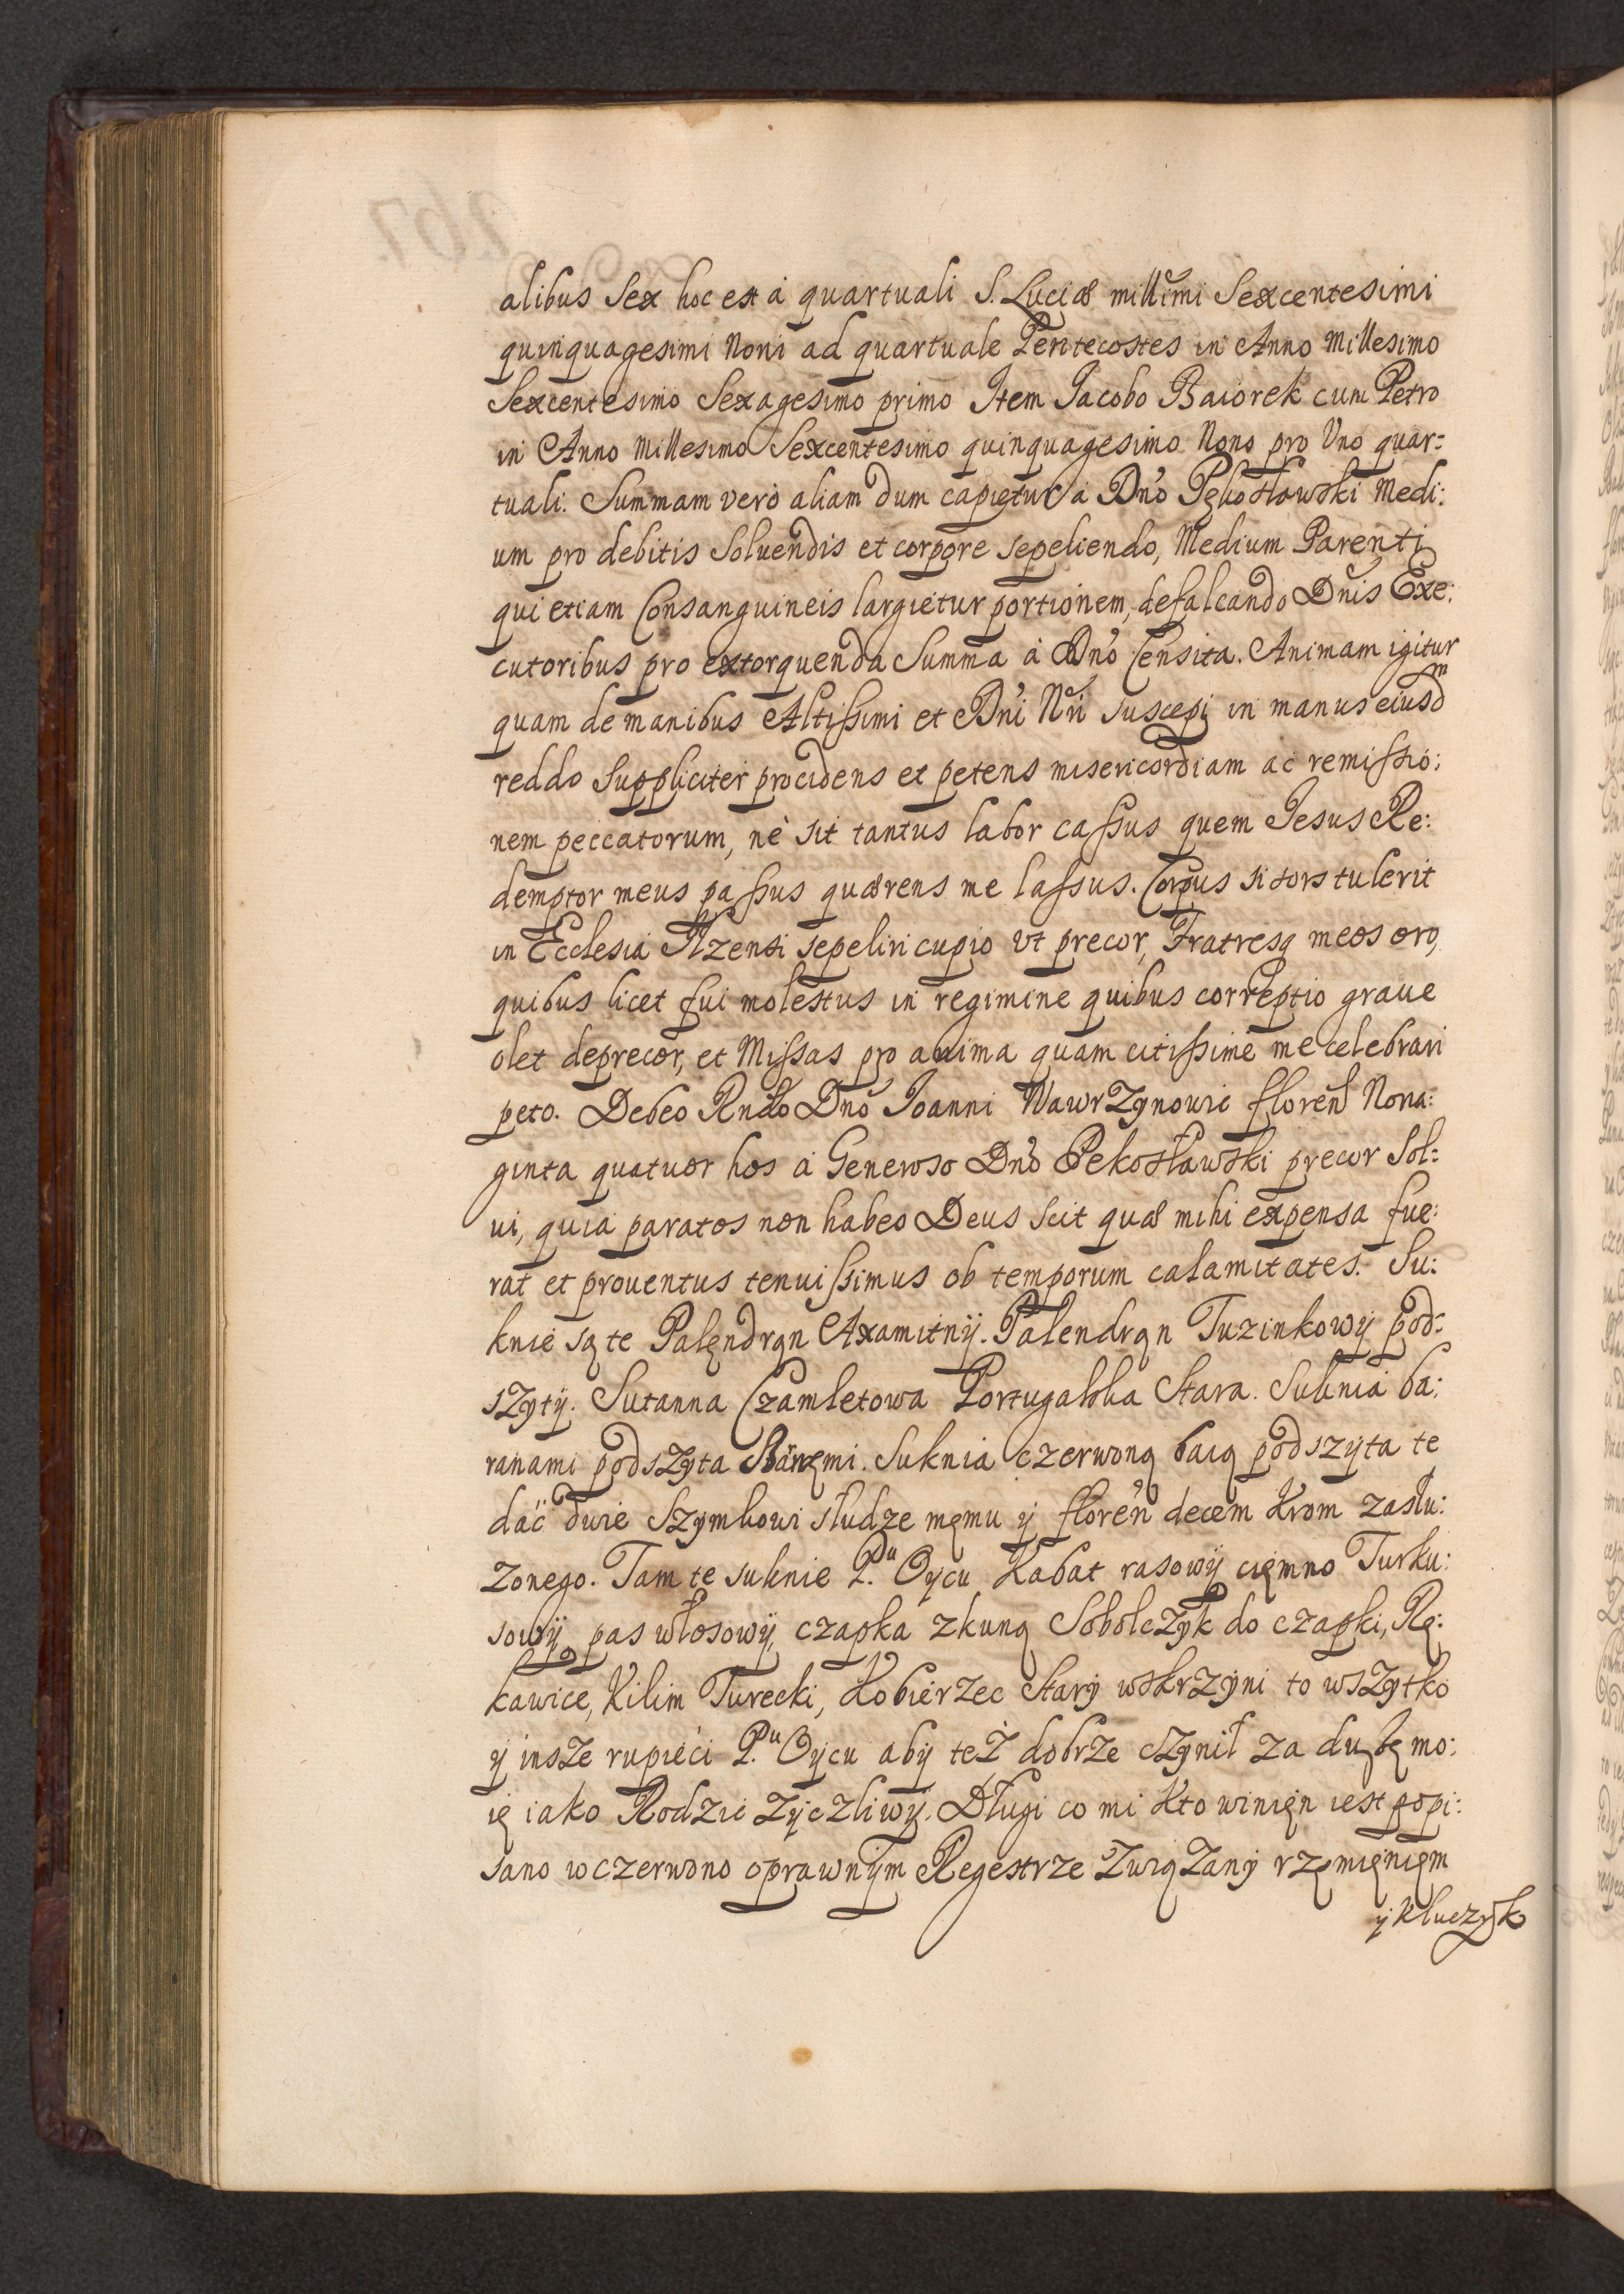 alibus Sex hoc est á quartuali S. Luciæ millimi Sexcentesimi
quinquagesimi Noni ad quartuale Pentecostes in Anno Millesimo
Sexcentesimo Sexagesimo primo Item Jacobo Baiorek cum Petro
in Anno Millesimo Sexcentesimo quinquagesimo Nono pro Uno quar:
tuali. Summam verò aliam dum capietur á Dno Pękosławski Medi:
um pro debitis Soluendis et corpore sepeliendo, Medium Parenti
qui etiam Consanguineis largietur portionem, defalcando Dnis Exe:
cutoribus pro extorquenda Summa á Dno Censita. Animam igitur
quam de manibus Altissimi et Dni Nri suscepi in manus eiusdm
reddo Suppliciter procidens et petens misericordiam ac remissio:
nem peccatorum, nè sit tantus labor cassus quem Jesus Re:
demptor meus passus quærens me lassus. Corpus si sors tulerit
in Ecclesia Ilzensi sepeliri cupio vt precor, Fratresq meos oro,
quibus licet fui molestus in regimine quibus correptio graue
olet deprecor, et Missas pro anima quam citissime me celebrari
peto. Debeo Rndo Dno Joanni Wawrzynowic floren Nona:
ginta quatuor hos á Generoso Dno Pekosławski precor Sol:
ui, quia paratos non habeo Deus scit quæ mihi expensa fue:
rat et prouentus tenuissimus ob temporum calamitates. Su:
knie są te Palęndrąn Axamitnÿ. Palendrąn Tuzinkowÿ pod:
szytÿ. Sutanna Czamletowa Portugalska Stara. Suknia ba:
ranami podszyta Starzemi. Suknia czerwoną baią podszÿta te
dać dwie Szymkowi słudze męmu ÿ floren decem Krom zasłu:
zonego. Tamte suknie P.u Oÿcu Kabat rasowÿ cięmno Turku:
sowÿ, pas włosowÿ, czapka zkuną Sobolczÿk do czapki, Rę:
kawice, Kilim Turecki, Kobierzec Starÿ wskrzÿni to wszÿtko
ÿ insze rupieci P.u Oÿcu abÿ też dobrze czÿnił za duszę mo:
ię iako Rodzic zÿczliwÿ. Długi co mi kto winięn iest popi:
sano wczerwono oprawnÿm Regestrze ZwiąZanÿ rzęmięnięm
ÿ kluczÿk